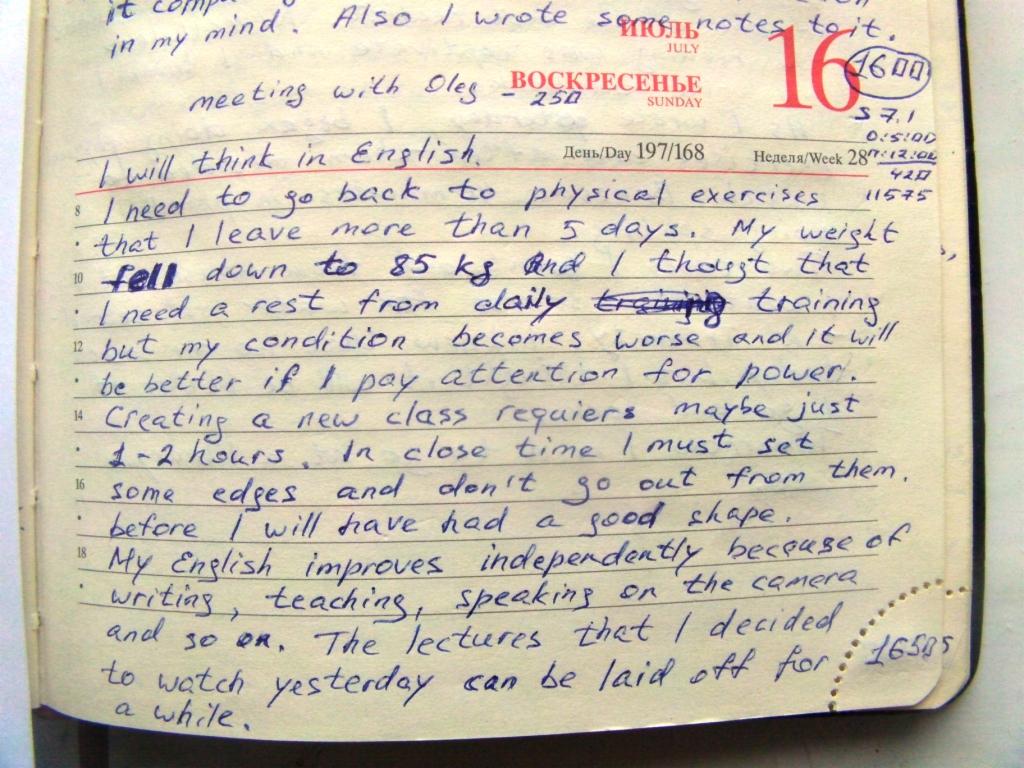 it
in my mind. Also I wrote some notes to it.
ИЮЛЬ
JULY
16
1600
ВОСКРЕСЕНЬЕ
SUNDAY
meeting with Oleg - 250
S 7.1
0:5:00
7:12:00
420
11575
День/Day 197/168
Неделя/Week 28
I will think in English.
8 I need to go back to physical exercises
that I leave more than 5 days. My weight
10 fell down to 85 kg and I thougt that
I need a rest from daily training
12 but my condition becomes worse and it will
be better if I pay attention for power.
14 Creating a new class requiers maybe just
1-2 hours. In close time I must set
16 some edges and don't go out from them.
before I will have had a good shape.
18 My English improves independently because of
writing, teaching, speaking on the camera
and so on. The lectures that I decided
to watch yesterday can be laid off for
a while.